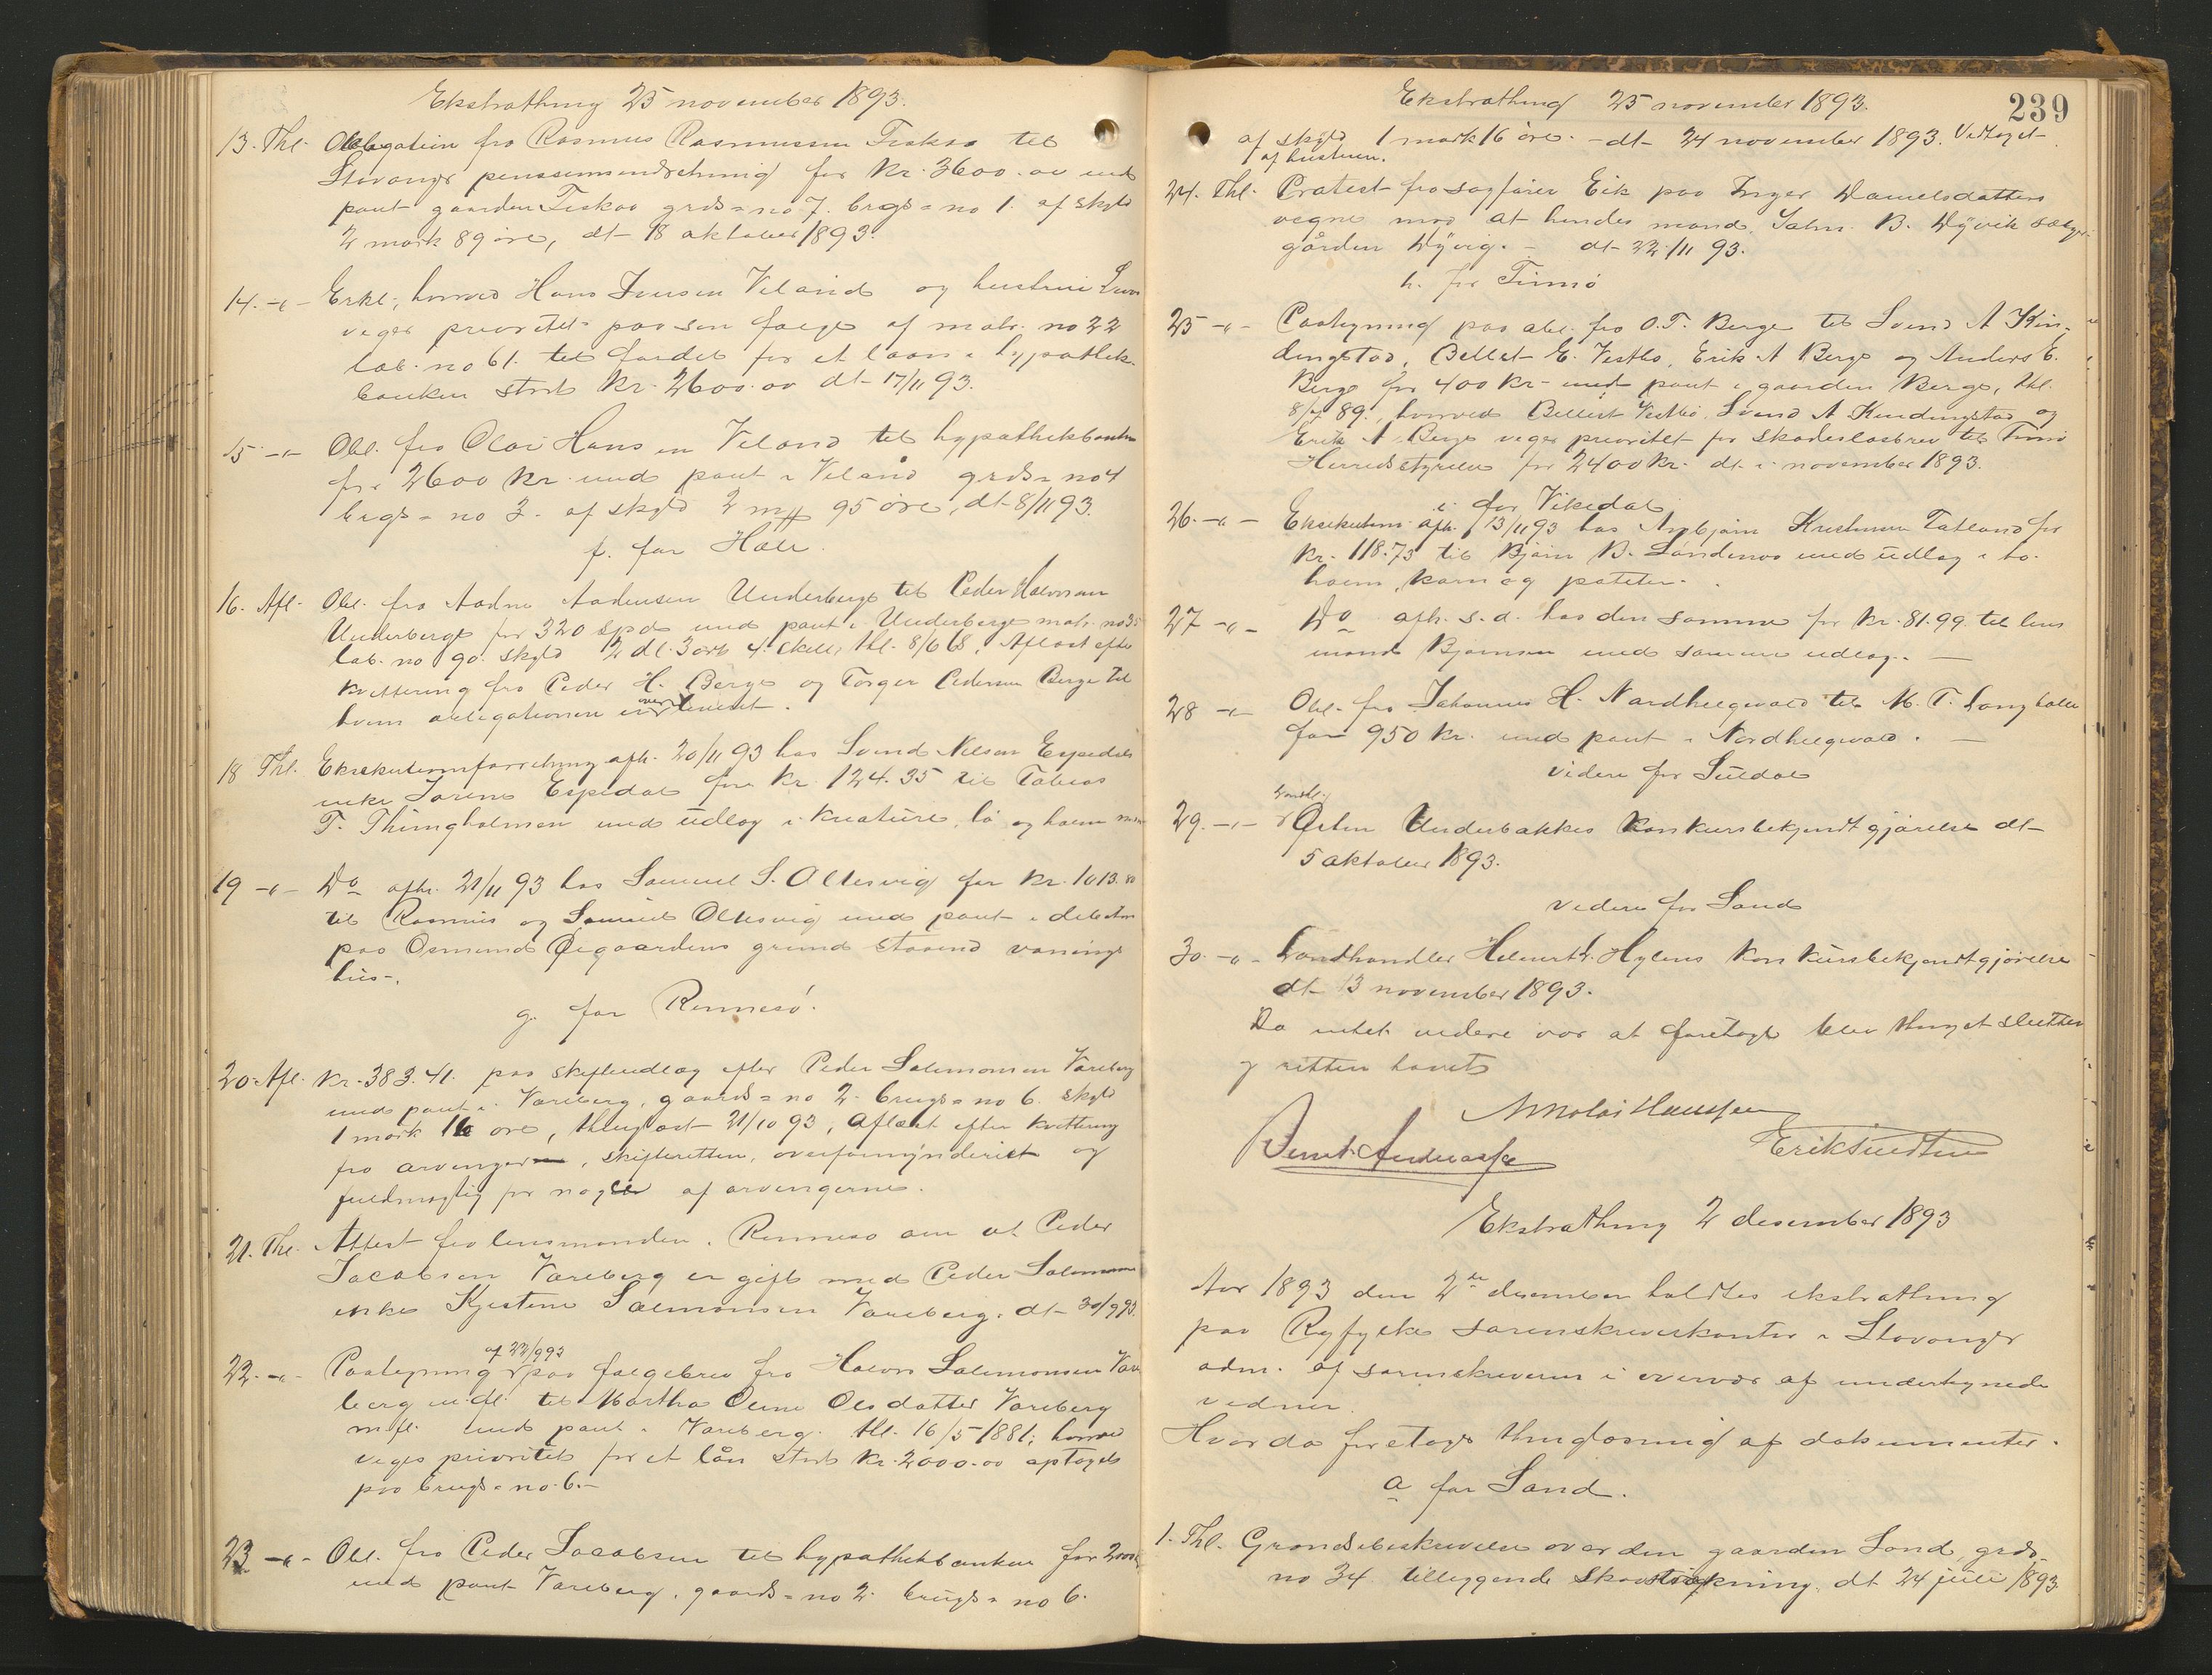 Ekstrathing 25 november 1893.
13. Thl. Obligation fra Rasmus Rasmussen Fiskaa til
Stavanger pensionsindretning for Kr. 3600.00 med
pant gaarden Fiskaa grds=no 7. brgs=no 1. af skyld
2 mark 89 øre, dt 18 oktober 1893.
14. -"- Erkl., hvorved Hans Iversen Veland og hustru
viger prioritet paa sin følge af matr. no 22
løb. no 61. til fordel for et laan i hypothek-
banken stort Kr. 2600.00 dt 17/11 93.
15 -"- Obl. fra Olai Hansen Veland til hypothekbanken
for 2600 Kr. med pant i Veland grds=no 4
brgs=no 3. af skyld 2 m 95 øre, dt 8/11 93.
f. for Hole.
16. Afl. Obl. fra Aadne Aadnesen Underberge til Peder Halvorsen
Underberge for 320 spd med pant i Underberge matr. no 35
løb. no 90. skyld ½ dl. 3 ort 4 skill, thl. 8/6 68, Aflæst efter
kvittering fra Peder H. Berge og Torger Pedersen Berge til
hvem obligationen er overleveret.
18 Thl. Eksekutionsforretning afh. 20/11 93 hos Svend Nilsen Espedals
enke Jorine Espedal for Kr. 124.35 til Tobias
T. Thimgholmen med udlæg i kreature, lø og høem m.m.
19 -"- Do afh. 21/11 93 hos Samuel S. Oltesvig for Kr. 1013.80
til Rasmus og Samuel Oltesvig med pant i debitors
paa Osmund Øegaardens grund staaende vaanings
hus-.
g. for Rennesø.
20. Afl. Kr. 383.41. paa skifteudlæg efter Peder Salomonsen Vareberg
med pant i Vareberg, gaards=no 2. brugs=no 6. skyld
1 mark 16 øre, thinglæst 21/10 93, Aflæst efter kvittering
fra arvinger, skifteretten, overformynderiet og
fuldmægtig for nogle af arvingerne.
21. Thl. Attest fra lensmanden i Rennesø om at Peder
Jacobsen Vareberg er gift med Peder Salomonsens
enke Kjestine Salmonsen Vareberg. dt 30/9 93.
22. -"- Paategning af 22/9 93 paa følgebrev fra Halvor Salomonsen Vare
berg m.fl. til Martha Oline Olsdatter Vareberg
m.fl. med pant i Vareberg. thl. 16/5 1881; hvorved
viges prioritet for et lån stort Kr. 2000.00 optaget
paa brugs=no. 6.-
23 -"- Obl. fra Peder Jacobsen til hypothekbanken for 2000
med pant Vareberg, gaards=no 2. brugs=no 6.
Ekstrathing 25 november 1893.
239
af skyld 1 mark 16 øre. - dt 24 november 1893. Vedtaget
af hustruen.
24. Thl. Protest fra sagfører Eik paa Inger Danielsdatters
vegne mod at hendes mand Sahn. B. Dyvik sælger
gården Dyvig. - dt 22/11 93.
h. for Finnø
25 -"- Paategning paa obl. fra O.T. Berge til Svend A Kin-
dingstad, Bellest E. Vestbø, Erik A Berge og Anders E.
Berge for 400 Kr. med pant i gaarden Berge, thl.
8/7 89, hvorved Bellest Vestbø, Svend A Kindingstad og
Erik A Berge viger prioritet for skadesløsbrev til Finnø
Herredsstyrelse for 2400 Kr. dt i november 1893.
i. for Vikedal
26. -"- Eksekution afh. 13/11 93 hos Asbjørn Kristensen Tatland for
Kr. 118.73 til Bjørn B. Søndenaa med udlæg i to
høem, korn og poteter.
27 -"- Do afh. s.d. hos den samme for Kr. 81.99. til lens
mand Bjørnsen med samme udlæg. -
28 -"- Obl. fra Johannes H. Nordhelgevald til M. T. Langballe
for 950 Kr. med pant i Nordhelgevald. -
videre for Suldal
29. -"- Landhl. Østen Underbakkes konkursbekjendtgjørelse dt
5 oktober 1893.
videre for Sand
30. -"- Landhandler Helmert L. Hylens konkursbekjendtgjørelse
dt 13 november 1893.
Da intet videre var at foretage blev thinget sluttet
og retten hævet
Nikolai Hanssen
Bernt Andreassen Erik Knudsen
Ekstrathing 2 desember 1893
Aar 1893 den 2de desember holdtes ekstrathing
paa Ryfylke sorenskriverkontor i Stavanger
adm. af sorenskriveren i overvær af undertegnede
vidner.
Hvor da foretoges thinglæsning af dokumenter.
a for Sand.
1. Thl. Grændsebeskrivelse over den gaarden Sand, grds-
no 34 tilliggende skovstrækning. dt 24 juli 1893